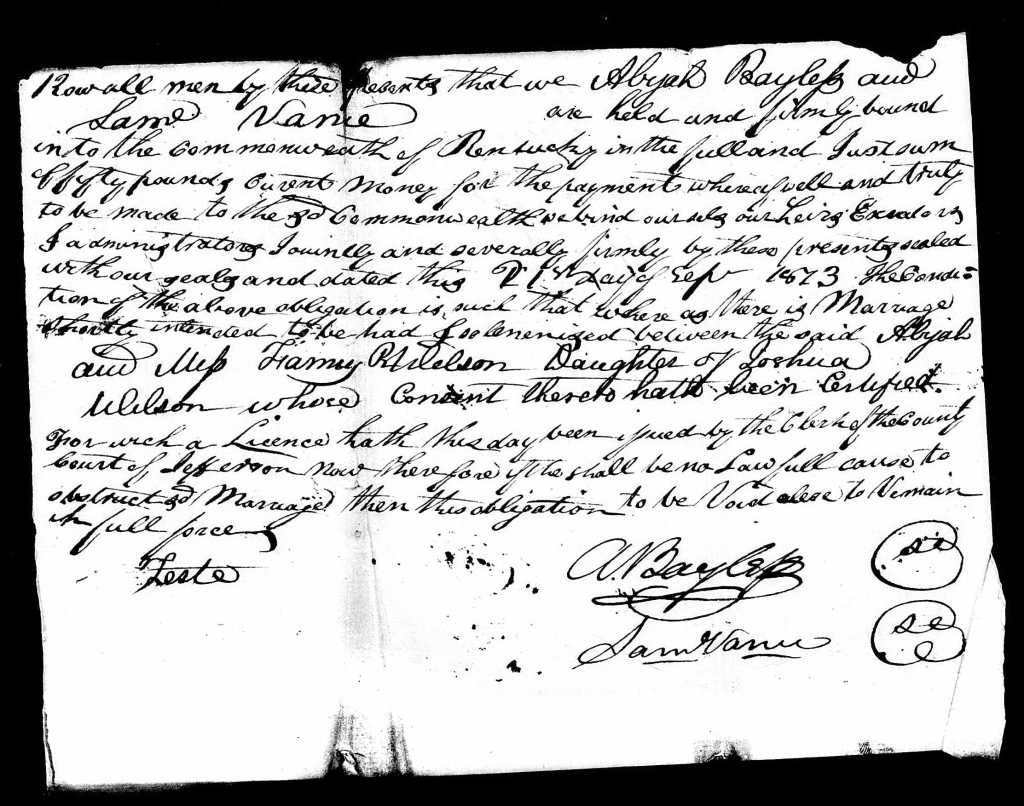 Know all men by these presents that we Abijah Bayless and
Saml Vance are held and firmly bound
in to the Commonweath of Kentucky in the full and Just sum
of fifty pounds Curent Money for the payment where of well and truly
to be made to the sd Commonwealth we bind oursels our Heirs Exeators
& administrators Jouintly and severally firmly by these presents sealed
with our seals and dated this Day of Sepr 1813 The Condi=
tion of the above obligation is such that where as there is Marriage
Shortly intended to be had & solemenised between the said Abijah
and Miss Fanney Wilson Daughter of Joshua
Wilson whose Consent thereto hath been Certified.
For wich a Licence hath this day been issued by the Clerk of the County
Court of Jefferson Now there fore if the shall be no Lawfull cause to
obstruct sd Marriage then this obligation to be Void elese to Remain
in full force
Teste
A. Bayless
Saml Vance